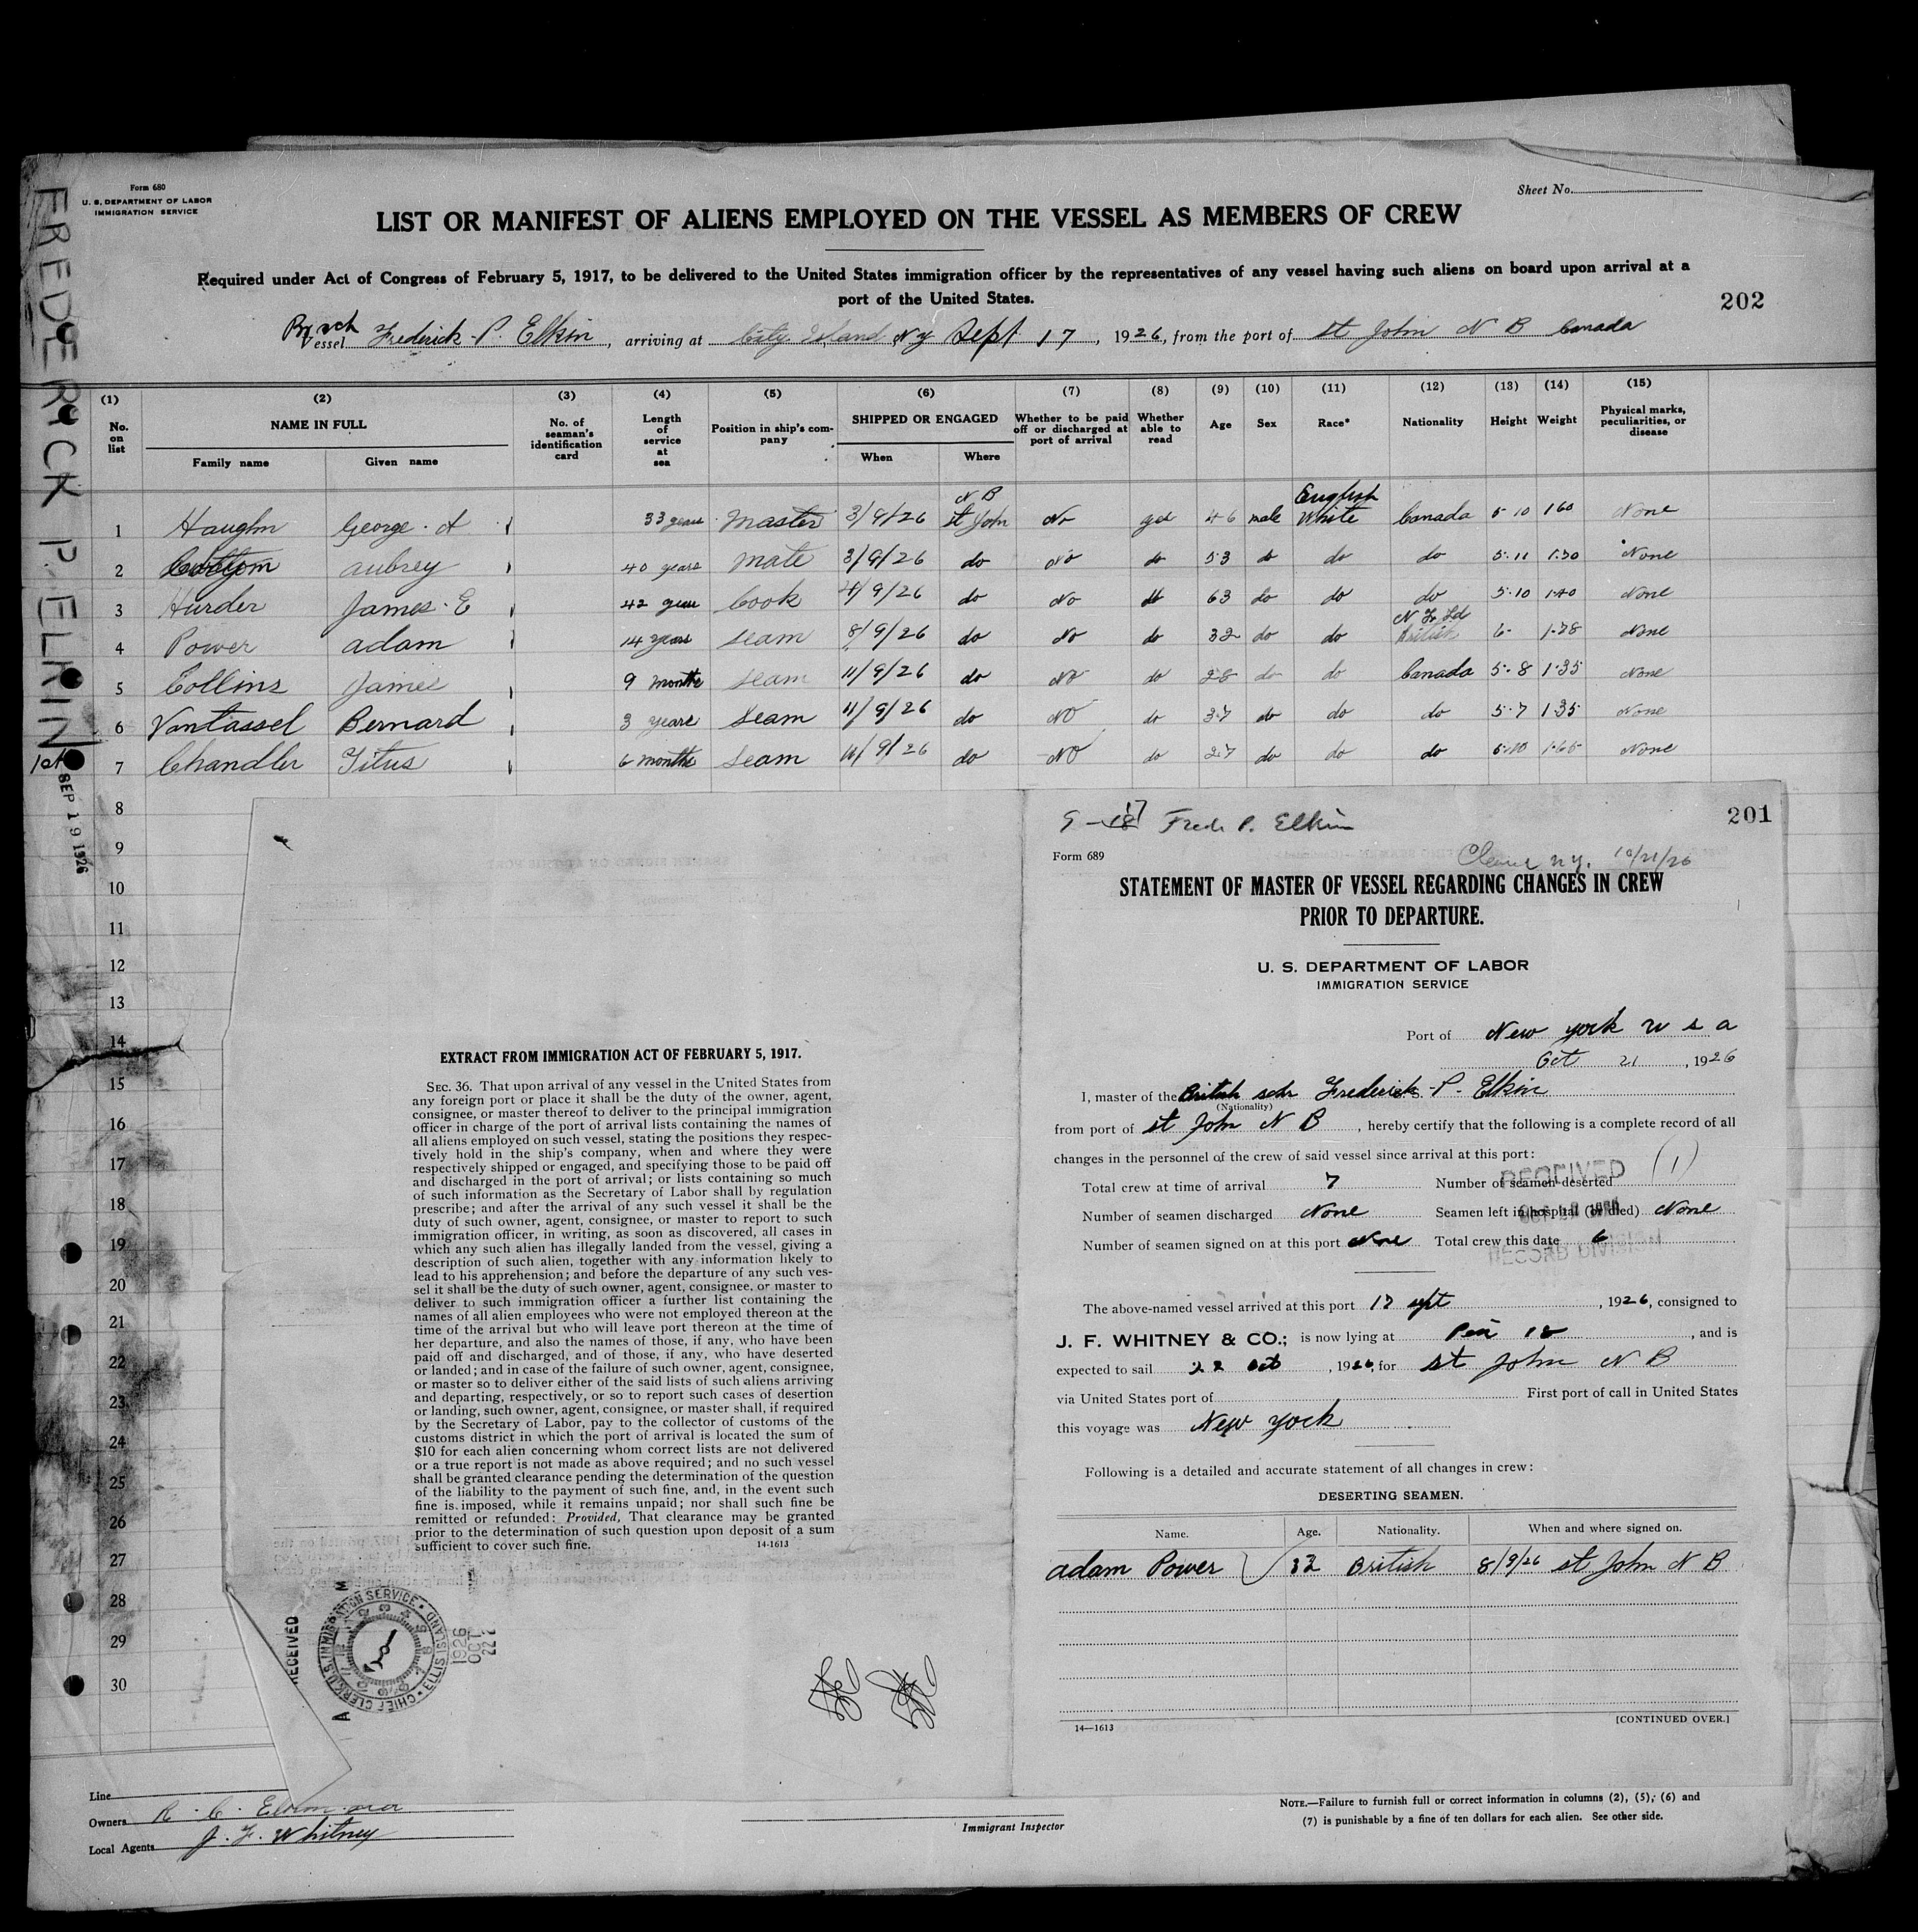 Form 680
U. S. DEPARTMENT OF LABOR
IMMIGRATION SERVICE
Sheet No.
LIST OR MANIFEST OF ALIENS EMPLOYED ON THE VESSEL AS MEMBERS OF CREW
Required under Act of Congress of February 5, 1917, to be delivered to the United States immigration officer by the representatives of any vessel having such aliens on board upon arrival at a
port of the United States.
202
Vessel Frederick P. Elkin, arriving at City Island N y Sept 17, 1926, from the port of St John N B Canada
FREDERICK P. ELKIN
SEP 19 1926
(1) (2) (3) (4) (5) (6) (7) (8) (9) (10) (11) (12) (13) (14) (15)
No. on list NAME IN FULL No. of seaman's identification card Length of service at sea Position in ship's company SHIPPED OR ENGAGED Whether to be paid off or discharged at port of arrival Whether able to read Age Sex Race* Nationality Height Weight Physical marks, peculiarities, or disease
Family name Given name When Where
1 Haughn George A 33 years Master 3/9/26 N B St John No yes 46 male English White Canada 5 10 160 None
2 aubrey 40 years Mate 3/9/26 do No do 53 do do do 5.11 None
3 Hurder James E 42 years Cook 4/9/26 do No do 63 do do do 5.10 None
4 Power adam 14 years seam 8/9/26 do No do 32 do do N F Ld British 6- None
5 Collins James 9 months seam 11/9/26 do No do 28 do do Canada 5-8 1.35 None
6 Vantassel Bernard 3 years seam 11/9/26 do No do 37 do do do 5-7 1.35 None
7 Chandler Titus 6 months seam 9/26 do No do 27 do do do 5-10 None
8
9
10
11
12
13
14
15
16
17
18
19
20
21
22
23
24
25
26
27
28
29
30
EXTRACT FROM IMMIGRATION ACT OF FEBRUARY 5, 1917.
SEC. 36. That upon arrival of any vessel in the United States from
any foreign port or place it shall be the duty of the owner, agent,
consignee, or master thereof to deliver to the principal immigration
officer in charge of the port of arrival lists containing the names of
all aliens employed on such vessel, stating the positions they respec-
tively hold in the ship's company, when and where they were
respectively shipped or engaged, and specifying those to be paid off
and discharged in the port of arrival; or lists containing so much
of such information as the Secretary of Labor shall by regulation
prescribe; and after the arrival of any such vessel it shall be the
duty of such owner, agent, consignee, or master to report to such
immigration officer, in writing, as soon as discovered, all cases in
which any such alien has illegally landed from the vessel, giving a
description of such alien, together with any information likely to
lead to his apprehension; and before the departure of any such ves-
sel it shall be the duty of such owner, agent, consignee, or master to
deliver to such immigration officer a further list containing the
names of all alien employees who were not employed thereon at the
time of the arrival but who will leave port thereon at the time of
her departure, and also the names of those, if any, who have been
paid off and discharged, and of those, if any, who have deserted
or landed; and in case of the failure of such owner, agent, consignee,
or master so to deliver either of the said lists of such aliens arriving
and departing, respectively, or so to report such cases of desertion
or landing, such owner, agent, consignee, or master shall, if required
by the Secretary of Labor, pay to the collector of customs of the
customs district in which the port of arrival is located the sum of
$10 for each alien concerning whom correct lists are not delivered
or a true report is not made as above required; and no such vessel
shall be granted clearance pending the determination of the question
of the liability to the payment of such fine, and, in the event such
fine is imposed, while it remains unpaid; nor shall such fine be
remitted or refunded: Provided, That clearance may be granted
prior to the determination of such question upon deposit of a sum
sufficient to cover such fine.
14-1613
RECEIVED
CHIEF CLERK U.S. IMMIGRATION SERVICE ELLIS ISLAND
1926
OCT
22
201
Fred. P. Elkin
Form 689
N.Y. 10/21/26
STATEMENT OF MASTER OF VESSEL REGARDING CHANGES IN CREW
PRIOR TO DEPARTURE.
U. S. DEPARTMENT OF LABOR
IMMIGRATION SERVICE
Port of New york u s a
Oct 21, 1926
I, master of the British schr Frederick P. Elkin
(Nationality)
from port of St John N B, hereby certify that the following is a complete record of all
changes in the personnel of the crew of said vessel since arrival at this port:
Total crew at time of arrival 7 Number of seamen deserted (1)
Number of seamen discharged None Seamen left in hospital (or died) None
Number of seamen signed on at this port None Total crew this date 6
RECEIVED
RECORD DIVISION
The above-named vessel arrived at this port 17 sept, 1926, consigned to
J. F. WHITNEY & CO.; is now lying at Pier 18, and is
expected to sail 22 Oct, 1926, for St John N B
via United States port of First port of call in United States
this voyage was New york
Following is a detailed and accurate statement of all changes in crew:
DESERTING SEAMEN.
Name. Age. Nationality. When and where signed on.
adam Power 32 British 8/9/26 St John N B
14—1613
[CONTINUED OVER.]
Line
Owners R. C. Elkin
Local Agents J. F. Whitney
Immigrant Inspector
NOTE.—Failure to furnish full or correct information in columns (2), (5), (6) and
(7) is punishable by a fine of ten dollars for each alien. See other side.